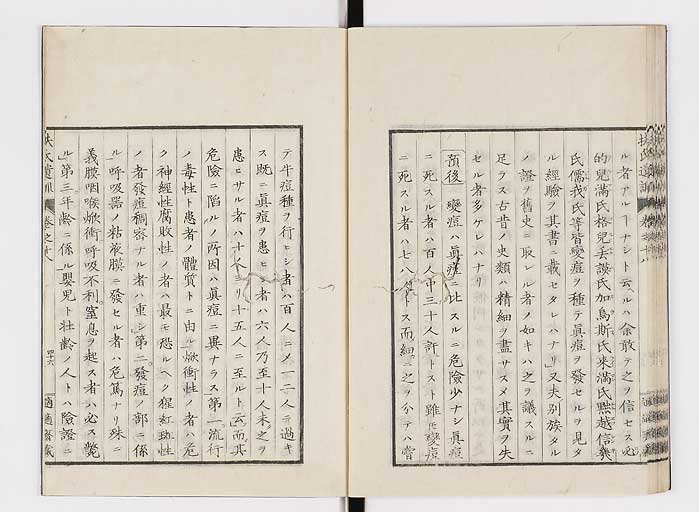 ル者アルヿナシト云ルハ余敢テ之ヲ信セス
的兒満氏格兒
氏儒我氏等皆變痘ヲ種テ眞痘ヲ發セルヲ見タ
ル經驗ヲ其書ニ載セタレハナリ又夫別族タル
ノ證ヲ舊史ニ取レル者ノ如キハ之ヲ議スルニ
足ラス古昔ノ史類ハ精細ヲ盡サスメ其實ヲ失
セル者多ケレハナリ
預後 變痘ハ眞痘ニ比スルニ危險少ナシ眞痘
ニ死スル者ハ百人中三十人許トス雖モ變痘
ニ死スル者ハ七八トス而細ニ之ヲ分テハ嘗
テ牛痘種ヲ行ヒシ者ハ百人ニメ一二人ニ過キ
ス既ニ眞痘ヲ患ヒシ者ハ六人乃至十人未之ヲ
患ヒサル者ハ十人ヨリ十五人ニ至ルト云而其
危險ニ陷ルノ所因ハ眞痘ニ異ナラス第一流行
ノ毒性ト患者ノ體質トニ由ル焮衝性ノ者ハ危
ク神經性腐敗性ノ者ハ最モ恐ルヘク猩紅班性
ノ者發痘稠密ナル者ハ重シ第二發痘ノ部ニ係
ル呼吸器ノ粘液膜ニ發セル者ハ危篤ナリ殊ニ
義膜咽喉焮衝呼吸不利窒息ヲ起ス者ハ必ス斃
ル第三年齡ニ係ル嬰兒ト壯齡ノ人トハ險證ニ
扶氏遺訓 卷之十八
四十六
適適齋藏